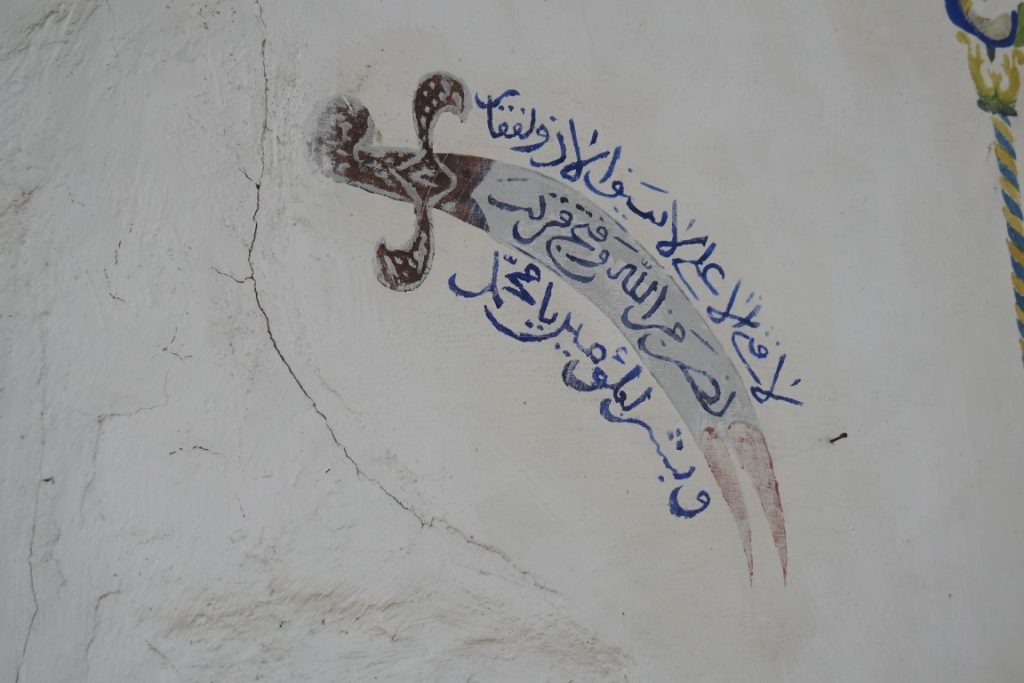 لا فتى الا على لا سيف الا ذولفقار
نصر من الله وفتح قريب
وبشر المؤمنين يا محمد